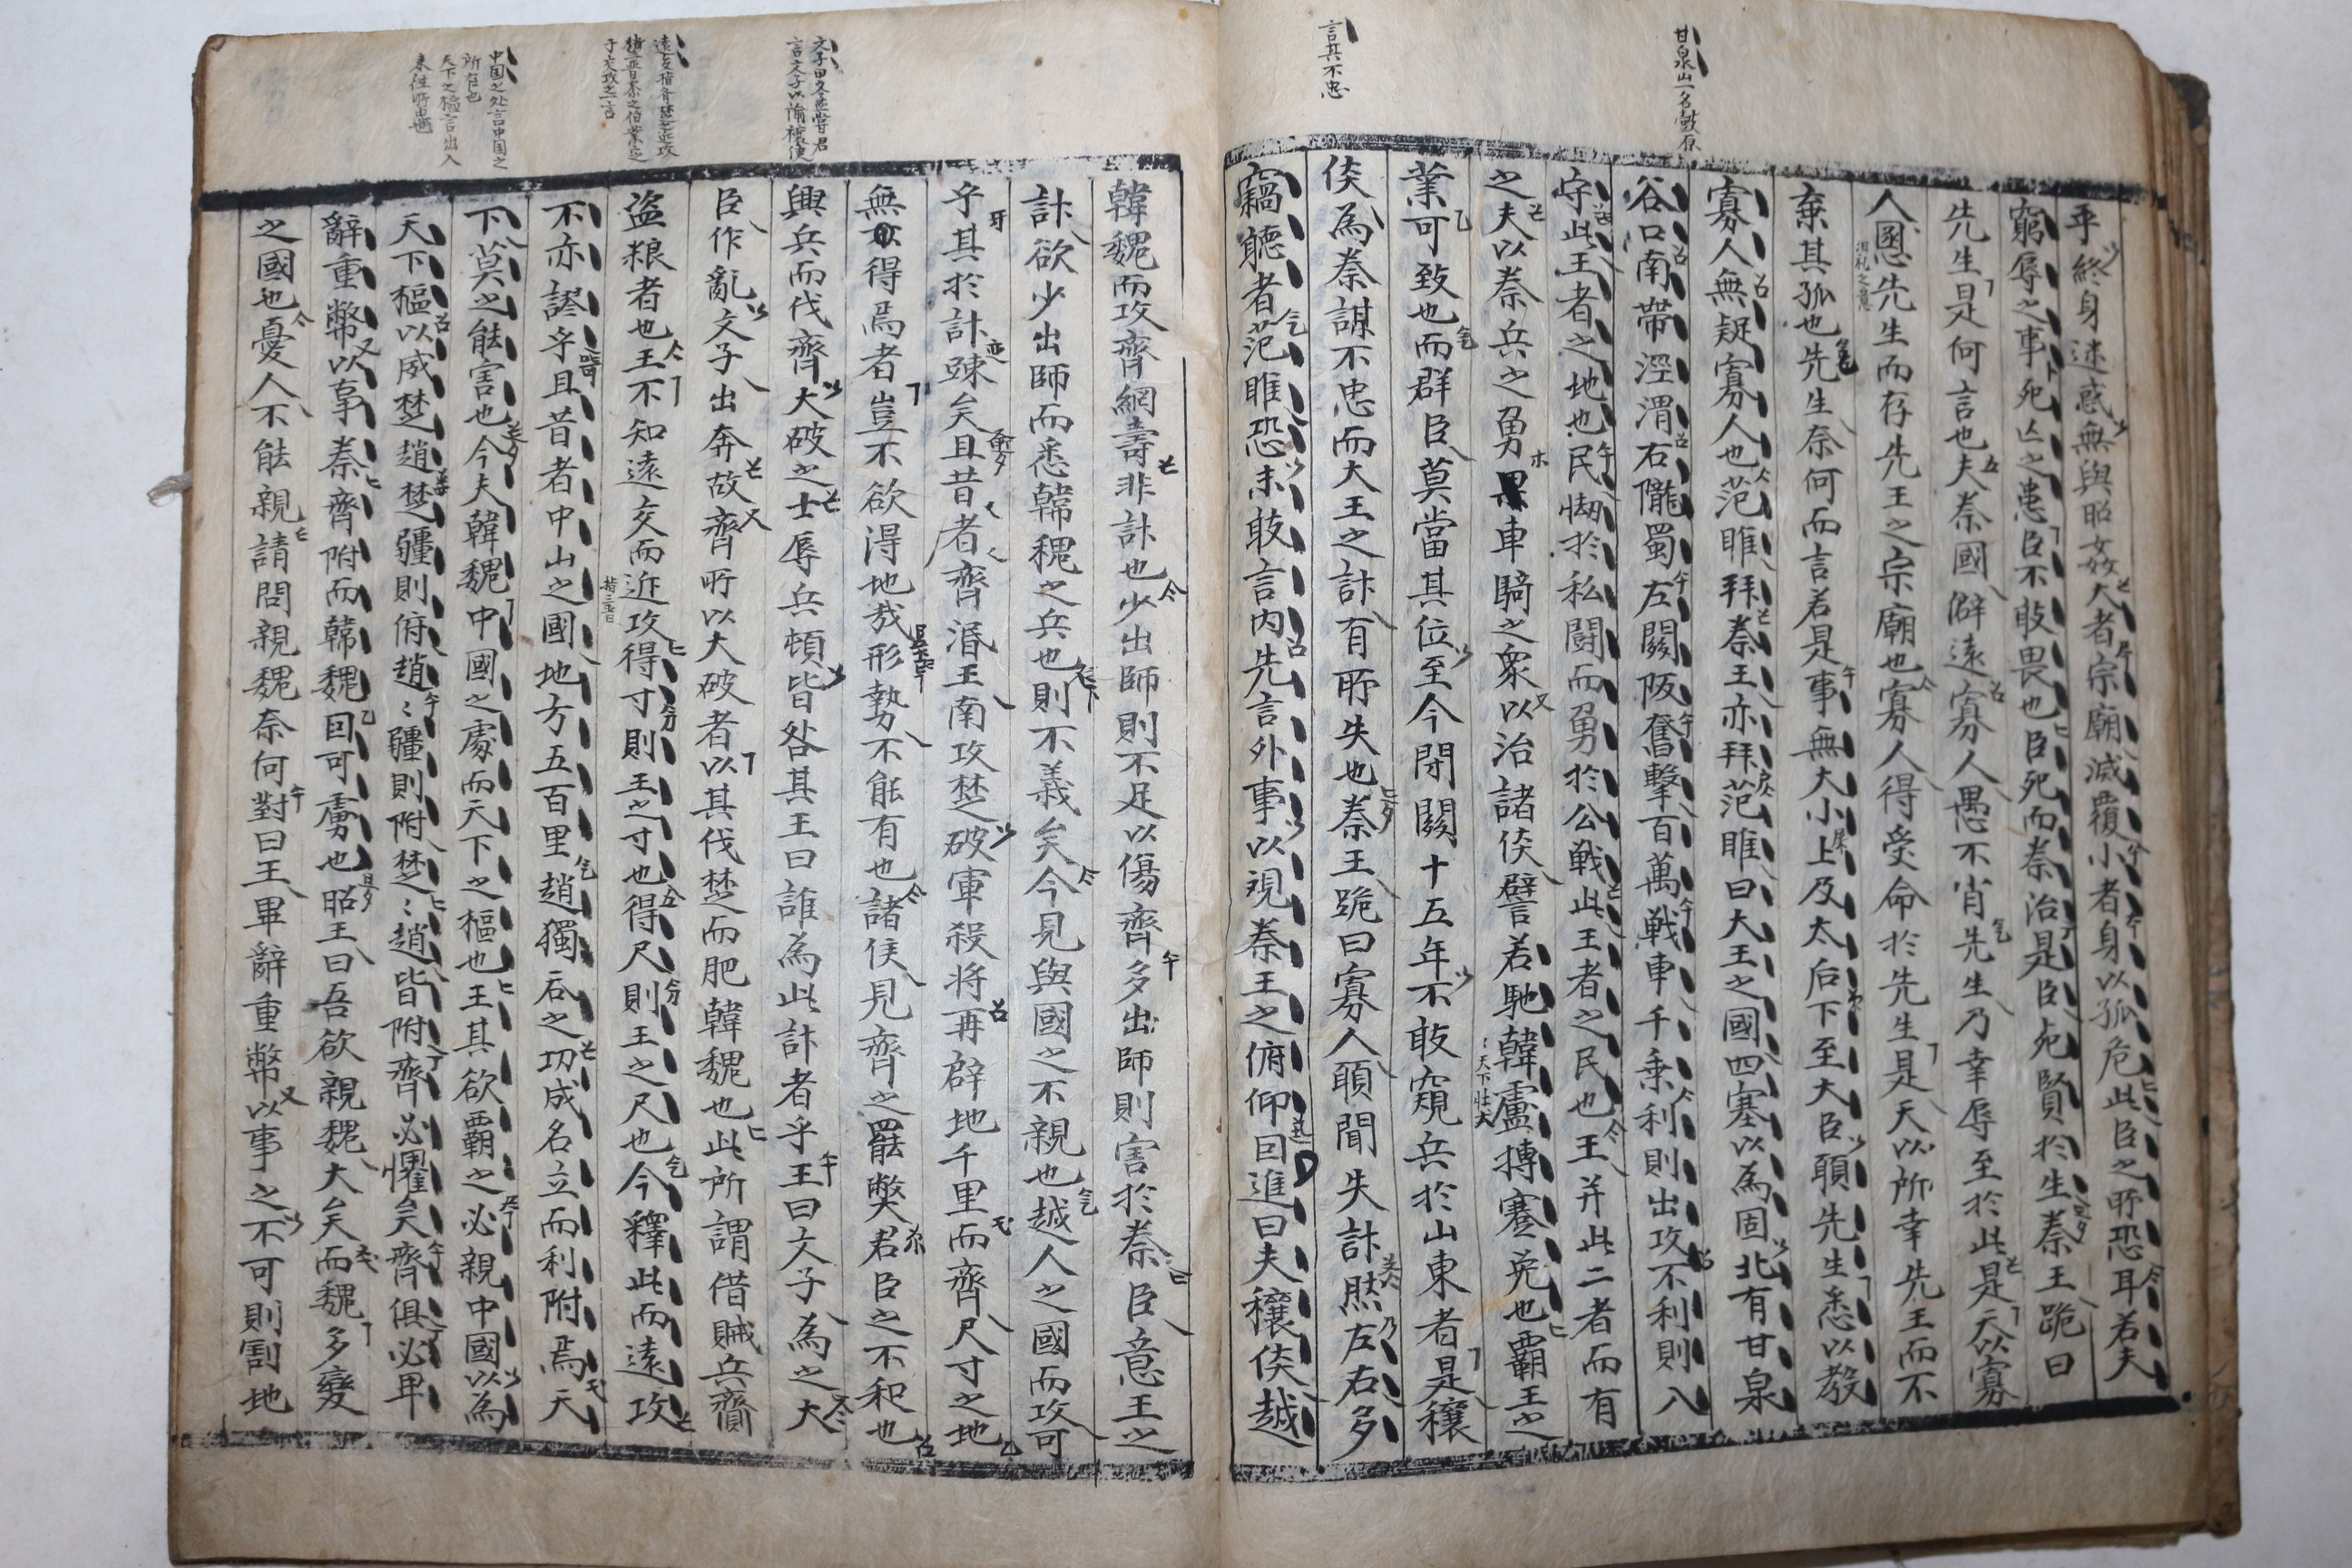 甘泉山一名鼓原
言其不忠
乎終身迷惑無與昭姦大者宗廟滅覆小者身以孤危此臣之所恐耳若夫
窮辱之事死亡之患臣不敢畏也臣死而秦治是臣死賢於生秦王跪曰
先生是何言也夫秦國僻遠寡人愚不肖先生乃幸辱至於此是天以寡
人慁先生而存先王之宗廟也寡人得受命於先生是天以所幸先王而不
棄其孤也先生奈何而言若是事無大小上及太后下至大臣願先生悉以敎
寡人無疑寡人也范睢拜秦王亦拜范睢曰大王之國四塞以為固北有甘泉
谷口南帶涇渭右隴蜀左關阪奮擊百萬戰車千乘利則出攻不利則入
守此王者之地也民怯於私鬪而勇於公戰此王者之民也王并此二者而有
之夫以秦兵之勇車騎之衆以治諸侯譬若馳韓盧搏蹇兎也霸王之
業可致也而群臣莫當其位至今閉關十五年不敢窺兵於山東者是穰
侯為秦謀不忠而大王之計有所失也秦王跪曰寡人願聞失計然左右多
竊聽者范睢恐未敢言內先言外事以視秦王之俯仰因進曰夫穰侯越
文子田文孟嘗君
言文子以諭穰侯
中国之处言中国之
所有也
天下之樞言出入
来往所由也
韓魏而攻齊綱壽非計也少出師則不足以傷齊多出師則害於秦臣意王之
計欲少出師而悉韓魏之兵也則不義矣今見與國之不親也越人之國而攻可
乎其於計疎矣且昔者齊湣王南攻楚破軍殺將再辟地千里而齊尺寸之地
無得焉者豈不欲得地哉形勢不能有也諸侯見齊之罷弊君臣之不和也
興兵而伐齊大破之士辱兵頓皆咎其王曰誰為此計者乎王曰文子為之大
臣作亂文子出奔故齊所以大破者以其伐楚而肥韓魏也此所謂借賊兵齎
盜粮者也王不知遠交而近攻得寸則王之寸也得尺則王之尺也今釋此而遠攻
不亦謬乎且昔者中山之國地方五百里趙獨呑之功成名立而利附焉天
下莫之能害也今夫韓魏中國之處而天下之樞也王其欲霸之必親中國以為
天下樞以威楚趙楚疆則附趙〻疆則附楚〻趙皆附齊必懼矣齊俱必卑
辭重幣以事秦齊附而韓魏因可虜也昭王曰吾欲親魏大矣而魏多變
之國也憂人不能親請問親魏奈何對曰王畢辭重幣以事之不可則割地